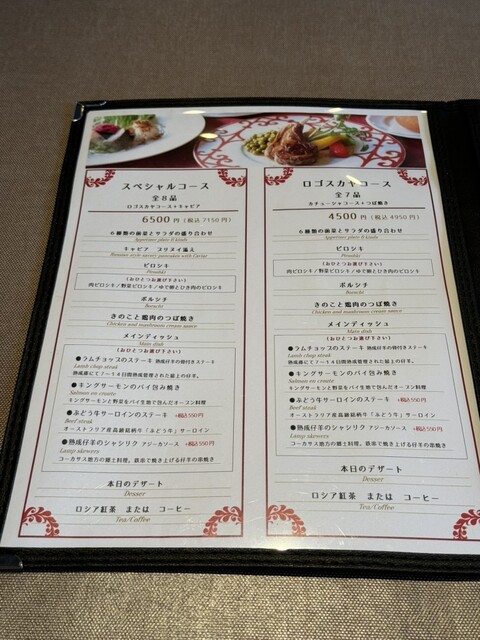 スペシャルコース
全8品
ロゴスカヤコース+キャビア
6500円(税込 7150円)
6種類の前菜とサラダの盛り合わせ
Appetizer plate 6 kinds
キャビア ブリヌイ添え
Russian style savory pancakes with Caviar
ピロシキ
Piroshki
(おひとつお選び下さい)
肉ピロシキ/野菜ピロシキ/ゆで卵とひき肉のピロシキ
ボルシチ
Borscht
きのこと鶏肉のつぼ焼き
Chicken and mashroom cream sauce
メインディッシュ
Main dish
(おひとつお選び下さい)
●ラムチョップのステーキ 熟成仔羊の骨付きステーキ
Lamb chop steak
熟成庫にて7~14日間熟成管理された最上の仔羊。
●キングサーモンのパイ包み焼き
Salmon en croute
キングサーモンと野菜をパイ生地で包んだオーブン料理
●ぶどう牛サーロインのステーキ +税込550円
Beef steak
オーストラリア産高級銘柄牛「ぶどう牛」サーロイン
●熟成仔羊のシャシリク アジーカソース +税込550円
Lamp skewers
コーカサス地方の郷土料理。鉄串で焼き上げる仔羊の串焼き
本日のデザート
Desser
ロシア紅茶 または コーヒー
Tea/Coffee
ロゴスカヤコース
全7品
カチューシャコース+つぼ焼き
4500円(税込 4950円)
6種類の前菜とサラダの盛り合わせ
Appetizer plate 6 kinds
ピロシキ
Piroshki
(おひとつお選び下さい)
肉ピロシキ/野菜ピロシキ/ゆで卵とひき肉のピロシキ
ボルシチ
Borscht
きのこと鶏肉のつぼ焼き
Chicken and mashroom cream sauce
メインディッシュ
Main dish
(おひとつお選び下さい)
●ラムチョップのステーキ 熟成仔羊の骨付きステーキ
Lamb chop steak
熟成庫にて7~14日間熟成管理された最上の仔羊。
●キングサーモンのパイ包み焼き
Salmon en croute
キングサーモンと野菜をパイ生地で包んだオーブン料理
●ぶどう牛サーロインのステーキ +税込550円
Beef steak
オーストラリア産高級銘柄牛「ぶどう牛」サーロイン
●熟成仔羊のシャシリク アジーカソース +税込550円
Lamp skewers
コーカサス地方の郷土料理。鉄串で焼き上げる仔羊の串焼き
本日のデザート
Desser
ロシア紅茶 または コーヒー
Tea/Coffee